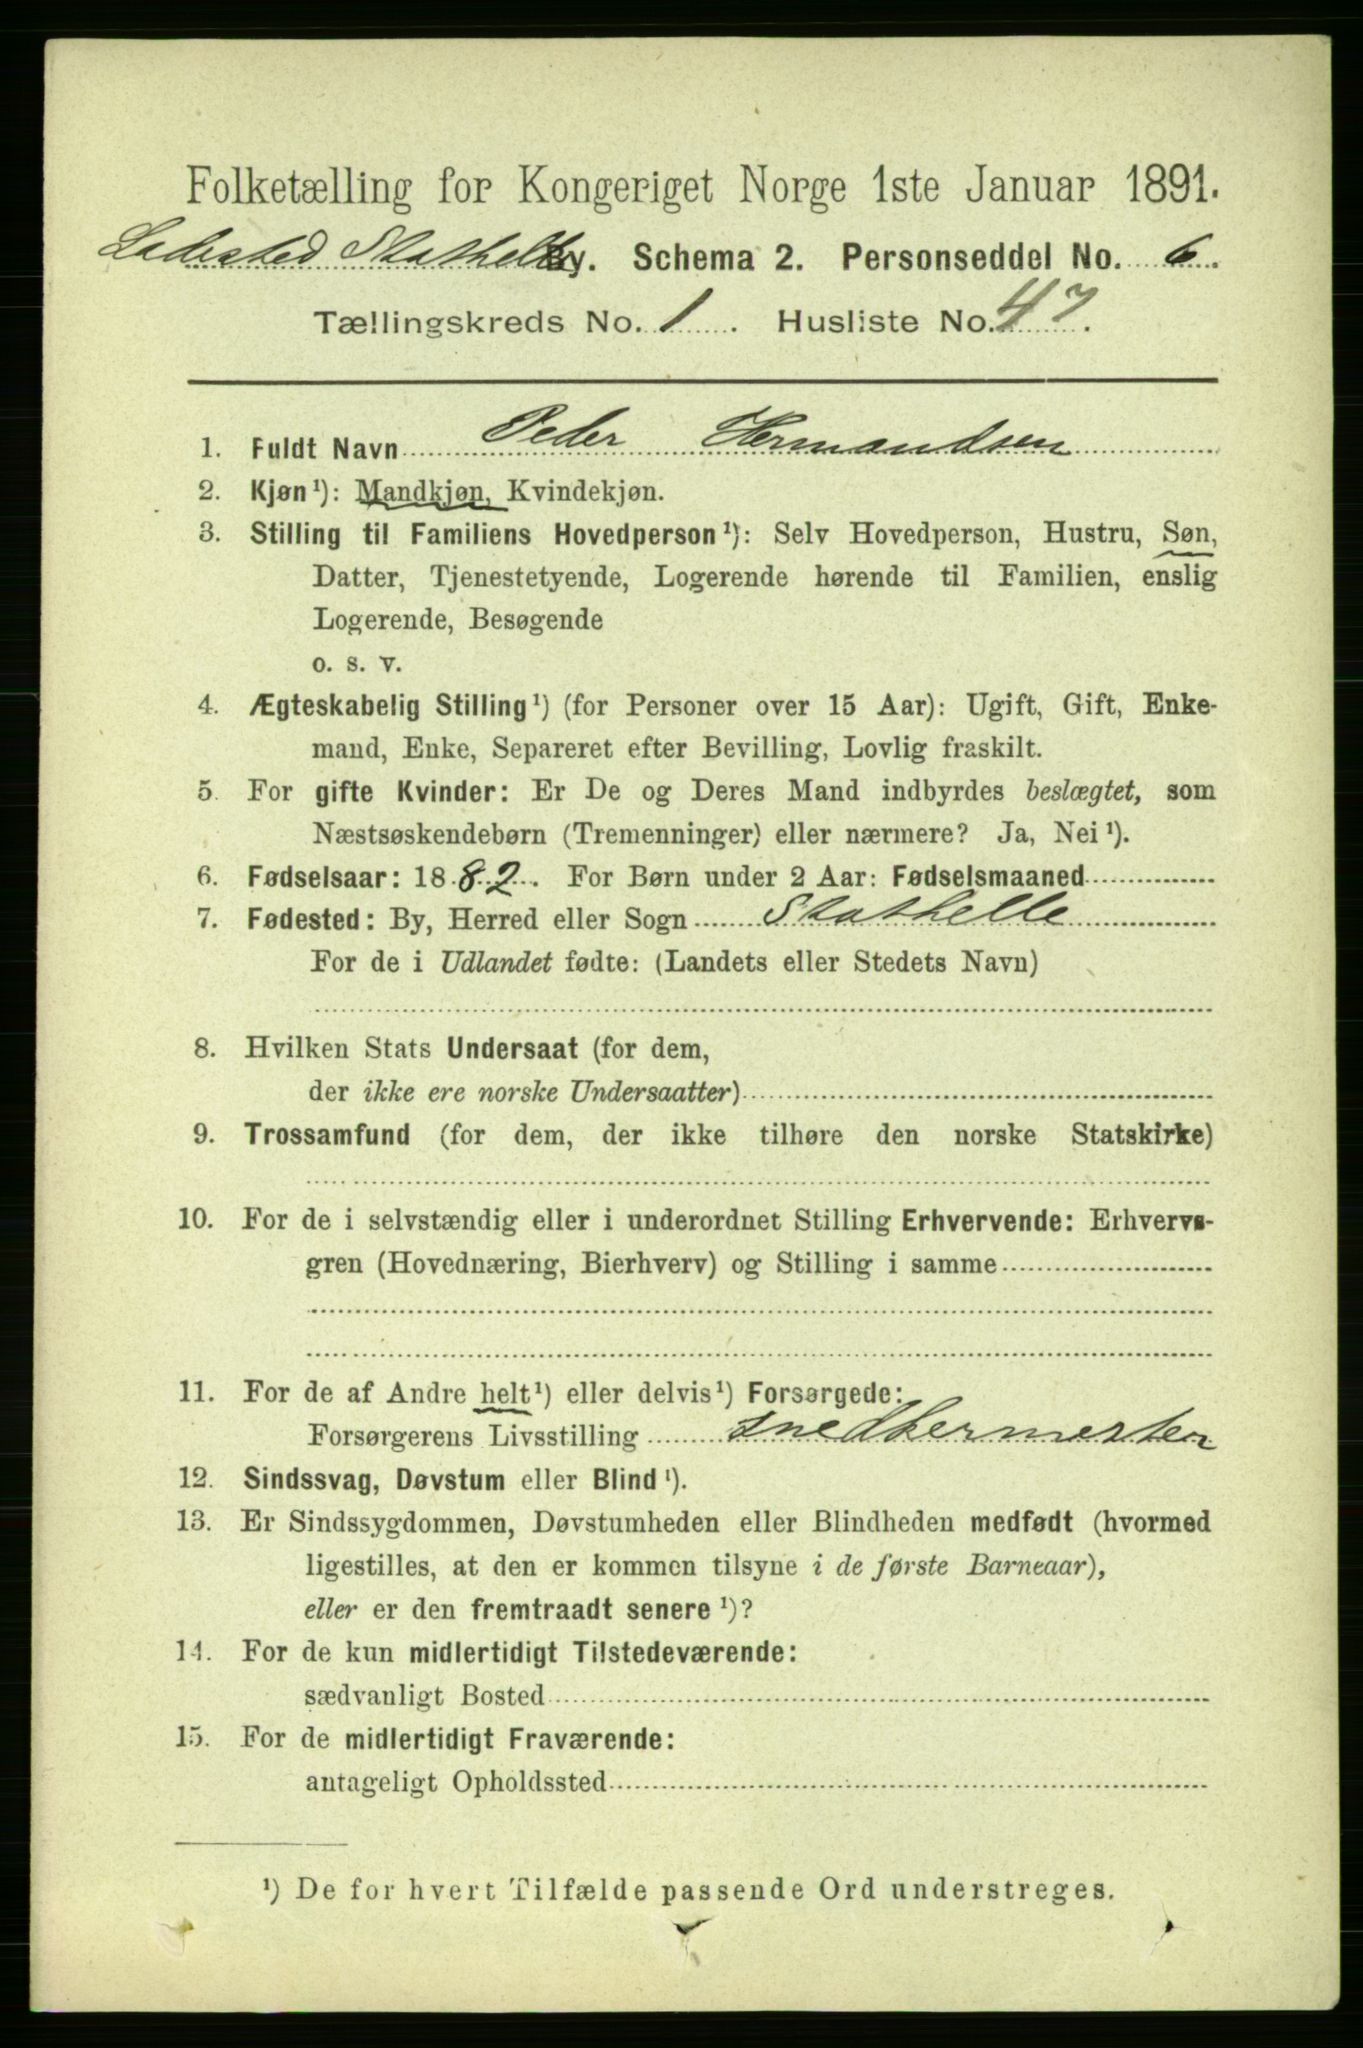 Folketælling for Kongeriget Norge 1ste Januar 1891.
Ladested Stathelle By. Schema 2. Personseddel No. 6.
Tællingskreds No. 1. Husliste No. 47.
1. Fuldt Navn Peder Hermandsen
2. Kjøn¹): Mandkjøn, Kvindekjøn.
3. Stilling til Familiens Hovedperson¹): Selv Hovedperson, Hustru, Søn,
Datter, Tjenestetyende, Logerende hørende til Familien, enslig
Logerende, Besøgende
o. s. v.
4. Ægteskabelig Stilling¹) (for Personer over 15 Aar): Ugift, Gift, Enke-
mand, Enke, Separeret efter Bevilling, Lovlig fraskilt.
5. For gifte Kvinder: Er De og Deres Mand indbyrdes beslægtet, som
Næstsøskendebørn (Tremenninger) eller nærmere? Ja, Nei¹).
6. Fødselsaar: 1882. For Børn under 2 Aar: Fødselsmaaned
7. Fødested: By, Herred eller Sogn Stathelle
For de i Udlandet fødte: (Landets eller Stedets Navn)
8. Hvilken Stats Undersaat (for dem,
der ikke ere norske Undersaatter)
9. Trossamfund (for dem, der ikke tilhøre den norske Statskirke)
10. For de i selvstændig eller i underordnet Stilling Erhvervende: Erhvervs-
gren (Hovednæring, Bierhverv) og Stilling i samme
11. For de af Andre helt¹) eller delvis¹) Forsørgede:
Forsørgerens Livsstilling snedkermester
12. Sindssvag, Døvstum eller Blind¹).
13. Er Sindssygdommen, Døvstumheden eller Blindheden medfødt (hvormed
ligestilles, at den er kommen tilsyne i de første Barneaar),
eller er den fremtraadt senere¹)?
14. For de kun midlertidigt Tilstedeværende:
sædvanligt Bosted
15. For de midlertidigt Fraværende:
antageligt Opholdssted
¹) De for hvert Tilfælde passende Ord understreges.